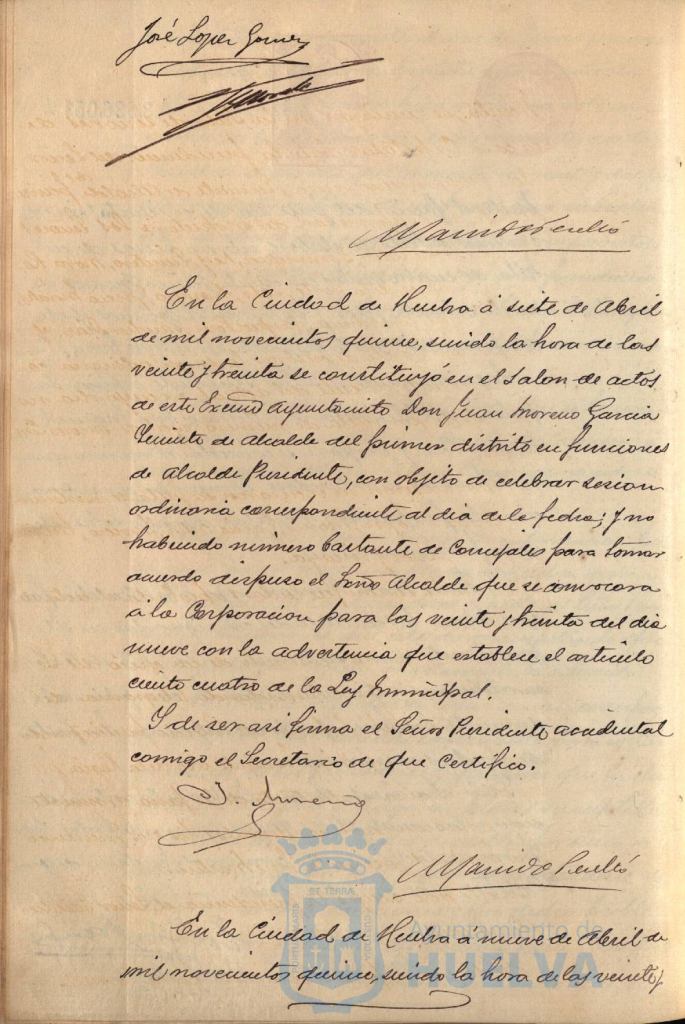 José Lopez Gomez
En la Ciudad de Huelva á siete de Abril
de mil novecientos quince, siendo la hora de las
veinte y treinta se constituyó en el Salon de actos
de este Excmo Ayuntamito Don Juan Moreno Garcia
Teniente de alcalde del primer distrito en funciones
de Alcalde Presidente, con objeto de celebrar sesion
ordinaria correspondiente al dia de la fecha; y no
habiendo número bastante de Concejales para tomar
acuerdo dispuso el Señor Alcalde que se convocara
á la Corporacion para las veinte y treinta del dia
nueve con la advertencia que establece el articulo
ciento cuatro de la Ley Municipal.
Y de ser asi firma el Señor Presidente accidental
comigo el Secretario de que Certifico.
J. Moreno
En la Ciudad de Huelva a nueve de Abril de
mil novecientos quince, siendo la hora de las veinte y
Ayuntamiento de
HUELVA